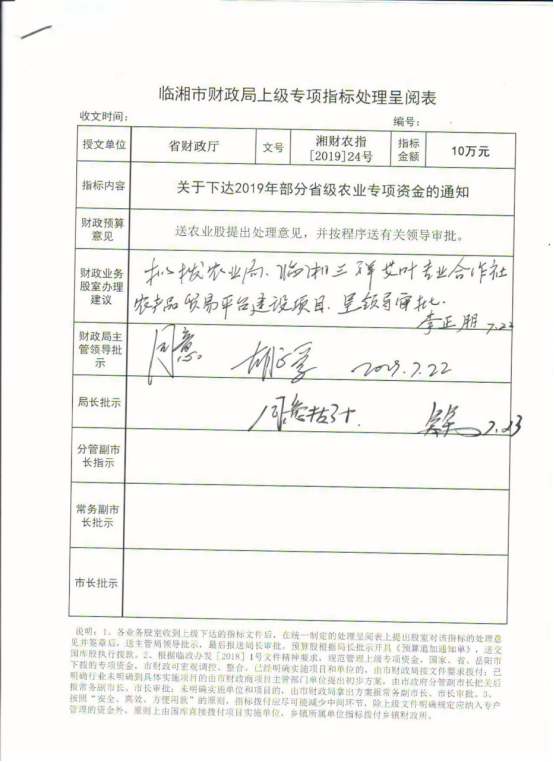 临湘市财政局上级专项指标处理呈阅表
收文时间： 编号：
授文单位 省财政厅 文号 湘财农指[2019]24号 指标金额 10万元
指标内容 关于下达2019年部分省级农业专项资金的通知
财政预算意见 送农业股提出处理意见，并按程序送有关领导审批。
财政业务股室办理建议 拟拨农业局、临湘三祥艾叶专业合作社
农产品贸易平台建设项目. 呈领导审批.
李正朋 7.22
财政局主管领导批示 同意。 2019.7.22
局长批示 同意 7.23
分管副市长指示
常务副市长批示
市长批示
说明：1、各业务股室收到上级下达的指标文件后，在统一制定的处理呈阅表上提出股室对该指标的处理意
见并签章后，送主管局领导批示，最后报送局长审批，预算股根据局长批示开具《预算追加通知单》，送交
国库股执行拨款。2、根据临政办发【2018】1号文件精神要求，规范管理上级专项资金，国家、省、岳阳市
下拨的专项资金，市财政可宏观调控、整合。已经明确实施项目和单位的，由市财政局按文件要求拨付；已
明确行业未明确到具体实施项目的由市财政商项目主管部门单位提出初步方案，由市政府分管副市长把关后
报常务副市长、市长审批；未明确实施单位和项目的，由市财政局拿出方案报常务副市长、市长审批。3、
按照“安全、高效、方便用款”的原则，指标拨付应尽可能减少中间环节，除上级文件明确规定应纳入专户
管理的资金外，原则上由国库直接拨付项目实施单位，乡镇所属单位指标拨付乡镇财政所。